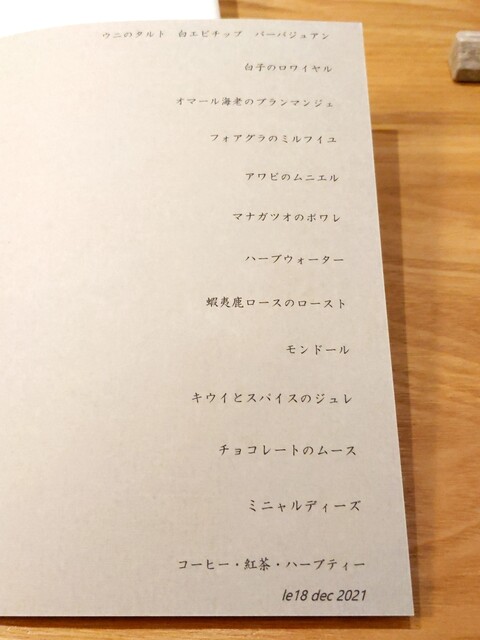 ウニのタルト　白エビチップ　バーバジュアン
白子のロワイヤル
オマール海老のブランマンジェ
フォアグラのミルフイユ
アワビのムニエル
マナガツオのポワレ
ハーブウォーター
蝦夷鹿ロースのロースト
モンドール
キウイとスパイスのジュレ
チョコレートのムース
ミニャルディーズ
コーヒー・紅茶・ハーブティー
le18 dec 2021